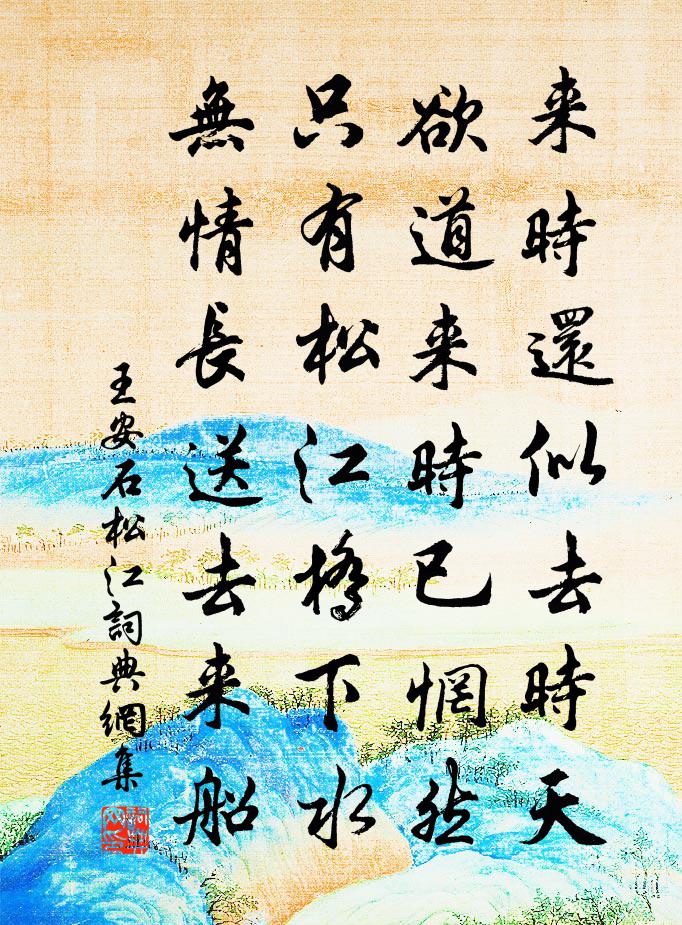 来時還似去時天
欲道来時已惘然
只有松江橋下水
無情長送去来船
王安石松江詞典網集